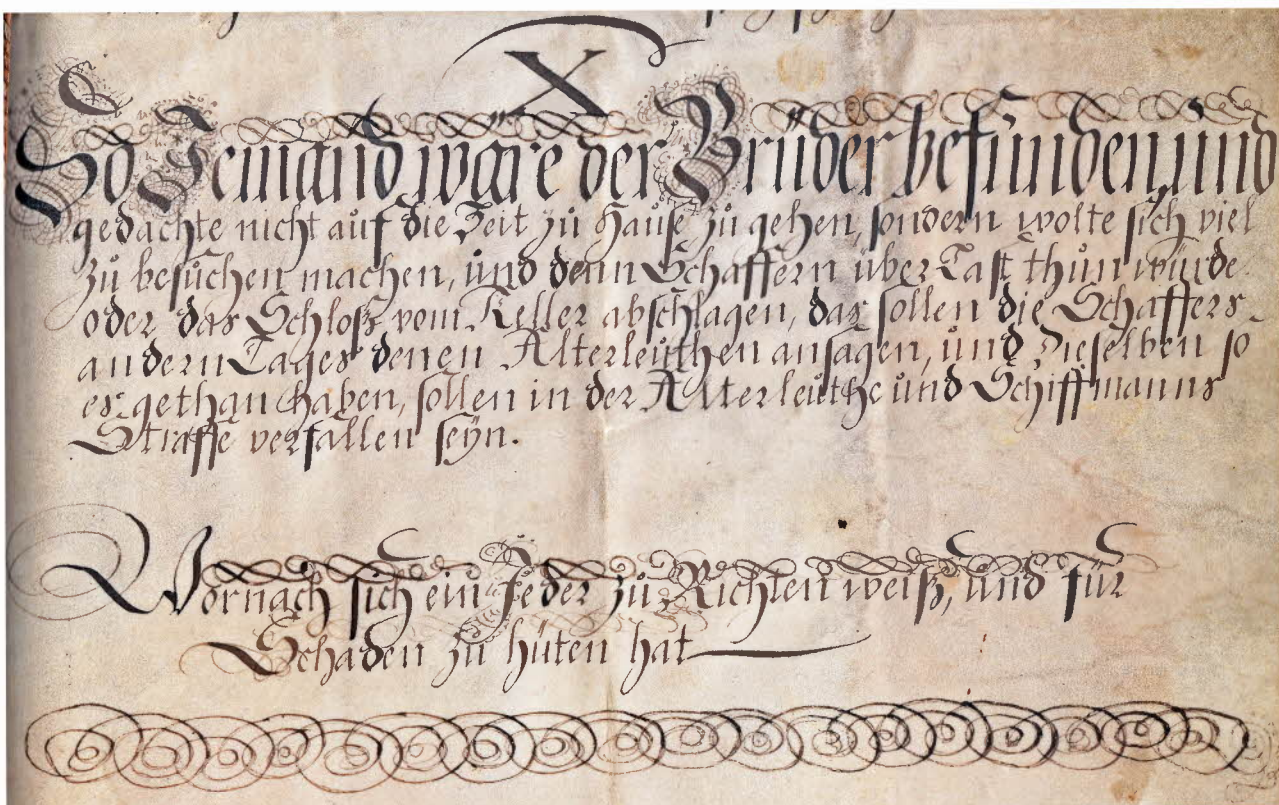 X
So Jemand wäre der Brüder befunden, und
gedachte nicht auf die Zeit zu Hause zu gehen, sondern wolte sich viel
zu besuchen machen, und denn Schaffern über Last thun würde
oder das Schloß vom Keller abschlagen, das sollen die Schaffers
andern Tages denen Alterleuthen ansagen, und Dieselben so
es gethan haben, sollen in der Alterleuthe und Schiffmanns
Straffe verfallen seyn.
Wornach sich ein Jeder zu Richten weiß, und für
Schaden zu hüten hat